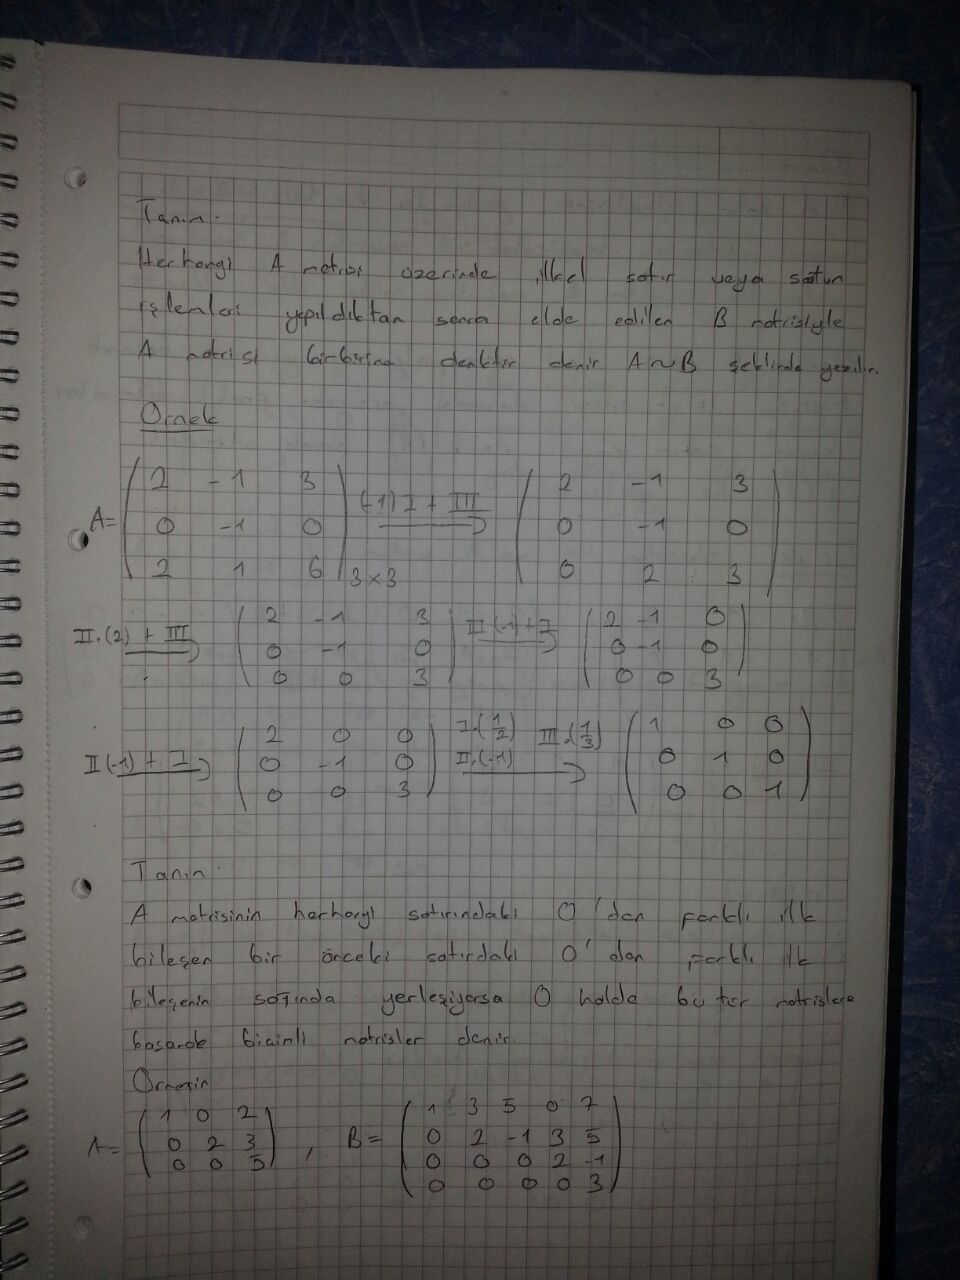 Tanım:
Herhangi A matrisi üzerinde ilkel satır veya sütun
işlemleri yapıldıktan sonra elde edilen B matrisiyle
A matrisi birbirine denktir denir A~B şeklinde yazılır.
Örnek
A= ( 2 -1 3 ; 0 -1 0 ; 2 1 6 ) 3×3 (-1) I + III → ( 2 -1 3 ; 0 -1 0 ; 0 2 3 )
II.(2) + III → ( 2 -1 3 ; 0 -1 0 ; 0 0 3 ) III(-1) + I → ( 2 -1 0 ; 0 -1 0 ; 0 0 3 )
II(-1) + I → ( 2 0 0 ; 0 -1 0 ; 0 0 3 ) I.(1/2) III.(1/3) II.(-1) → ( 1 0 0 ; 0 1 0 ; 0 0 1 )
Tanım:
A matrisinin herhangi satırındaki 0'dan farklı ilk
bileşen bir önceki satırdaki 0'dan farklı ilk
bileşenin sağında yerleşiyorsa O halde bu tür matrislere
basamak biçimli matrisler denir.
Örneğin
A= ( 1 0 2 ; 0 2 3 ; 0 0 5 ) , B= ( 1 3 5 0 7 ; 0 2 -1 3 5 ; 0 0 0 2 -1 ; 0 0 0 0 3 )